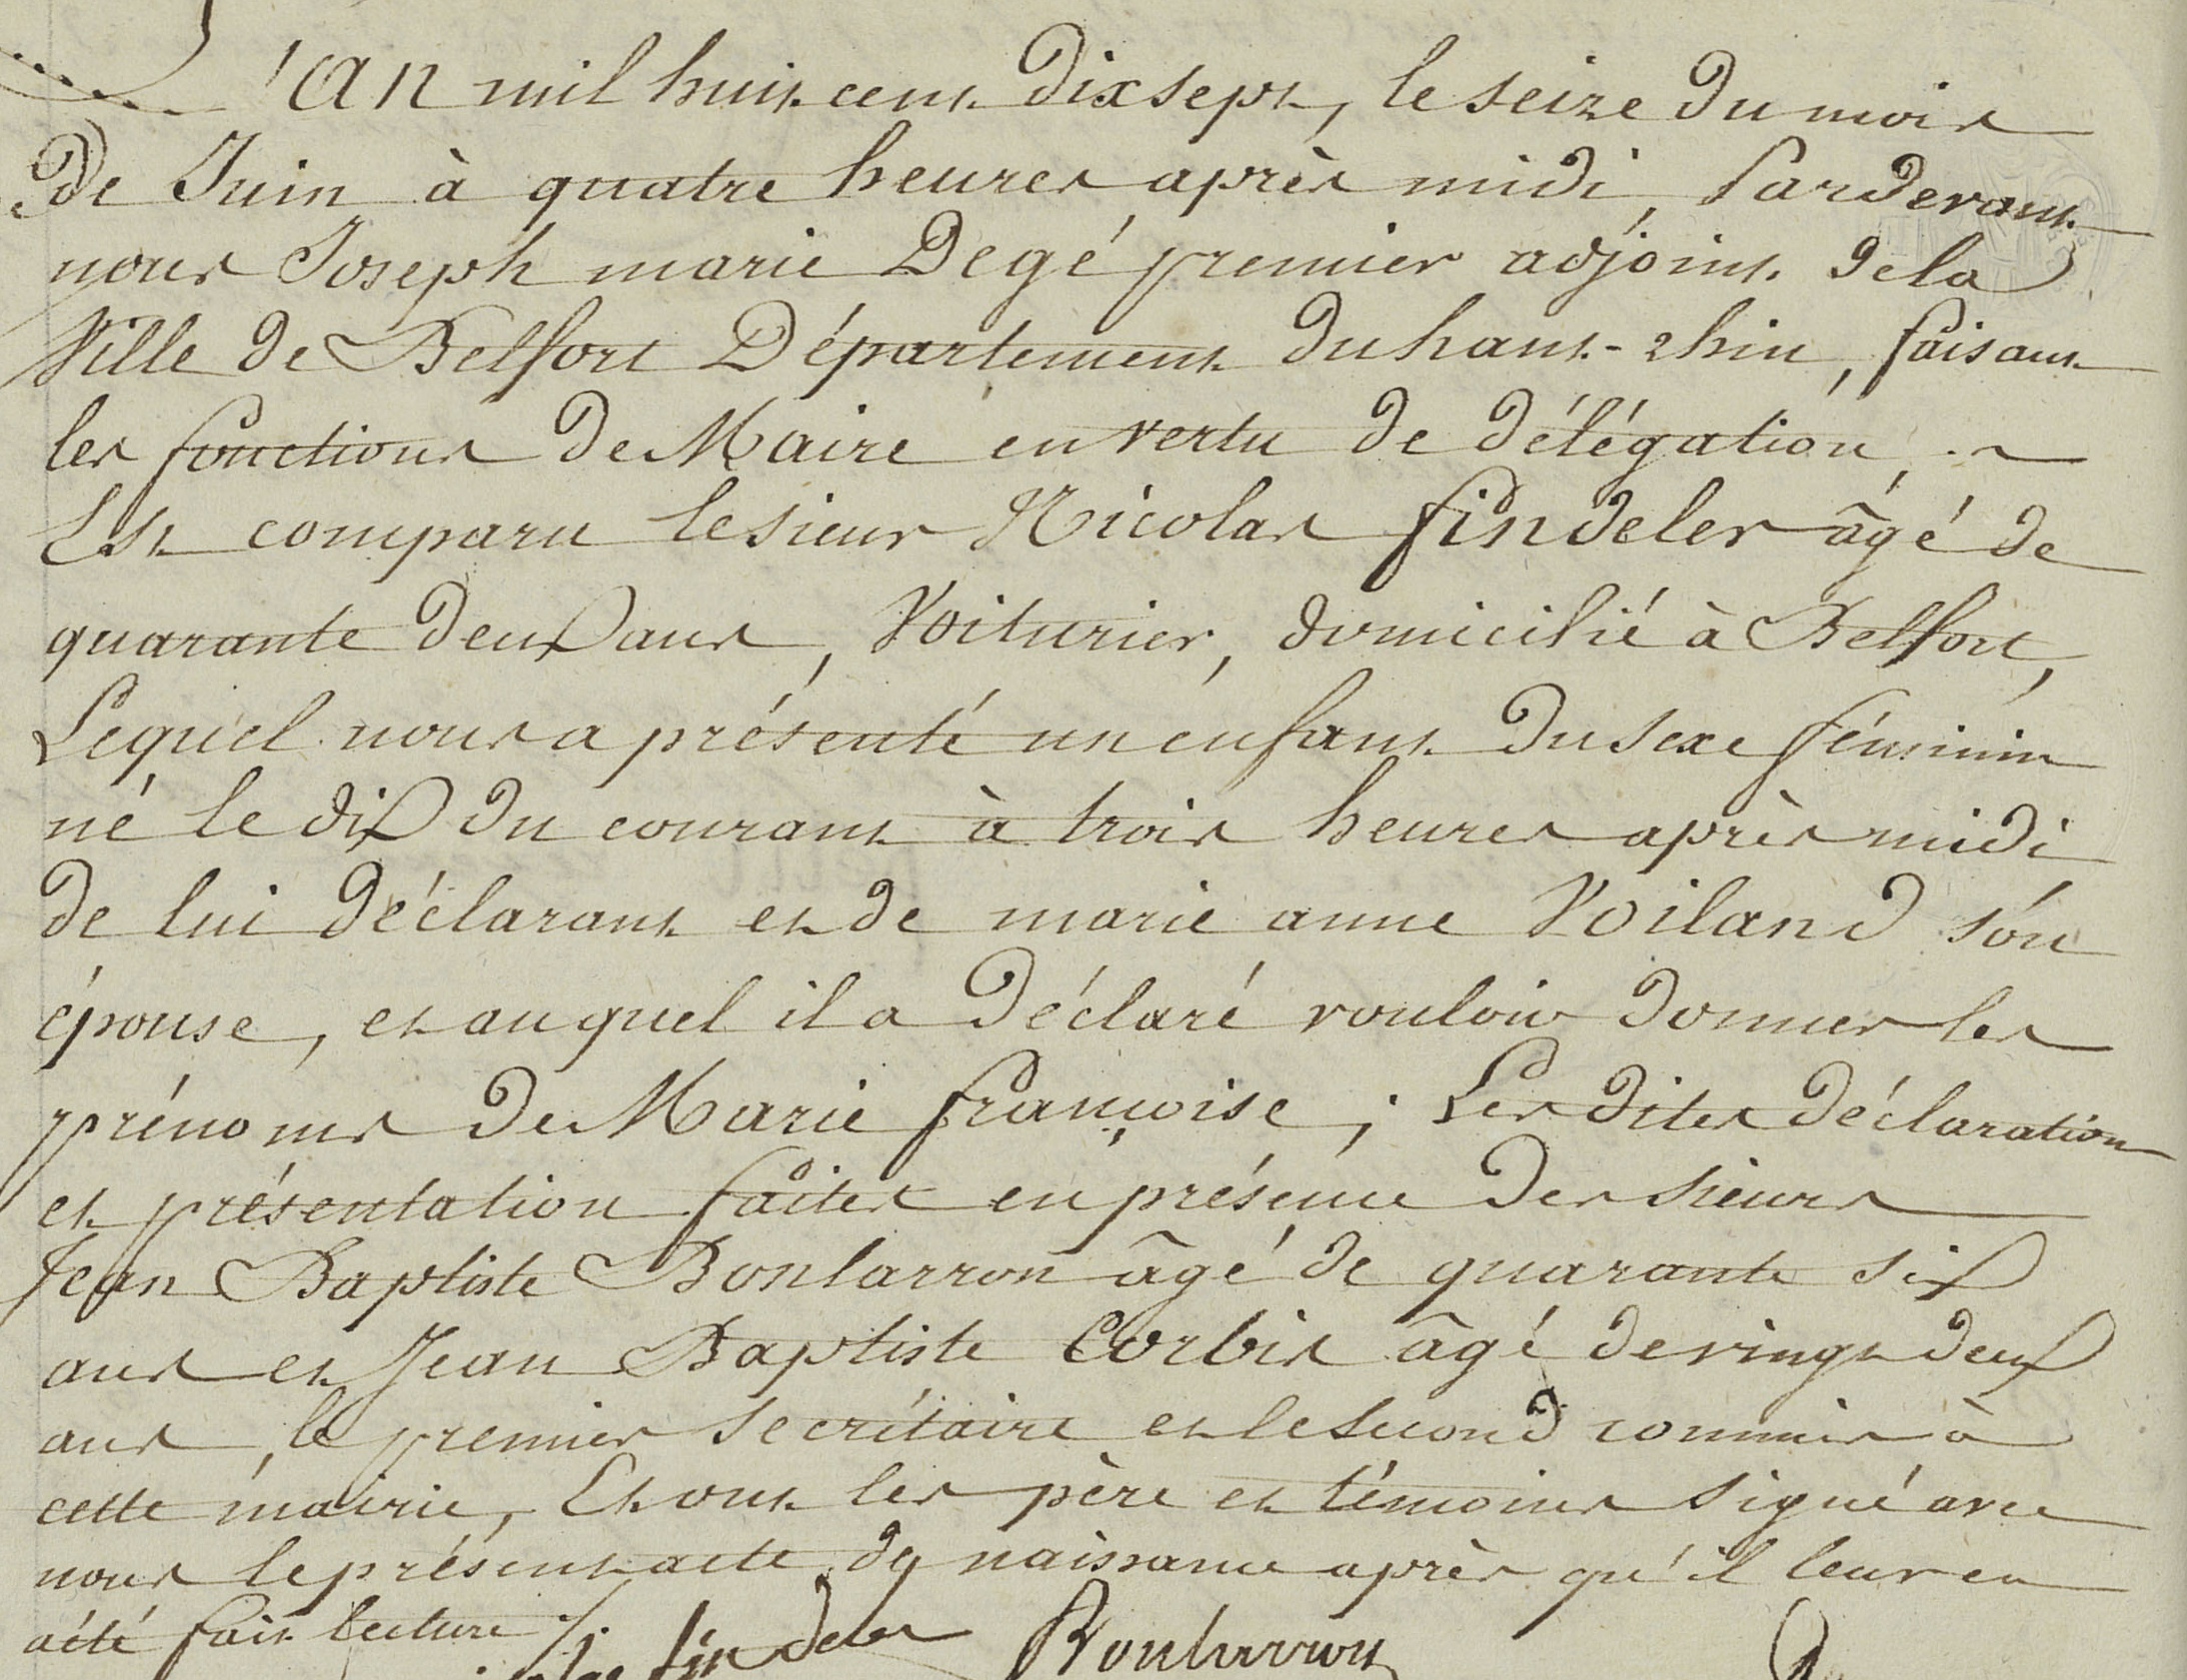 L'an mil huit cent dix sept, le seize du mois
de Juin à quatre heures après midi, Pardevant
nous Joseph marie Degé premier adjoint de la
Ville de Belfort Département du haut-rhin, faisant
les fonctions de Maire en vertu de délégation,
Est comparu le sieur Nicolas findeler âgé de
quarante deux ans, Voiturier, domicilié à Belfort,
Lequel nous a présenté un enfant du sexe féminin
né le dix du courant à trois heures après midi
de lui déclarant et de marie anne Voiland son
épouse, et auquel il a déclaré vouloir donner les
prénoms de Marie françoise; Les dites déclaration
et présentation faites en présence des sieurs
Jean Baptiste Bontarron âgé de quarante six
ans et Jean Baptiste Corbis âgé de vingt deux
ans, le premier secrétaire et le second commis à
cette mairie, Et ont les père et témoins signé avec
nous le présent acte de naissance après qu'il leur en
a été fait lecture ./.
findeler Bontarron